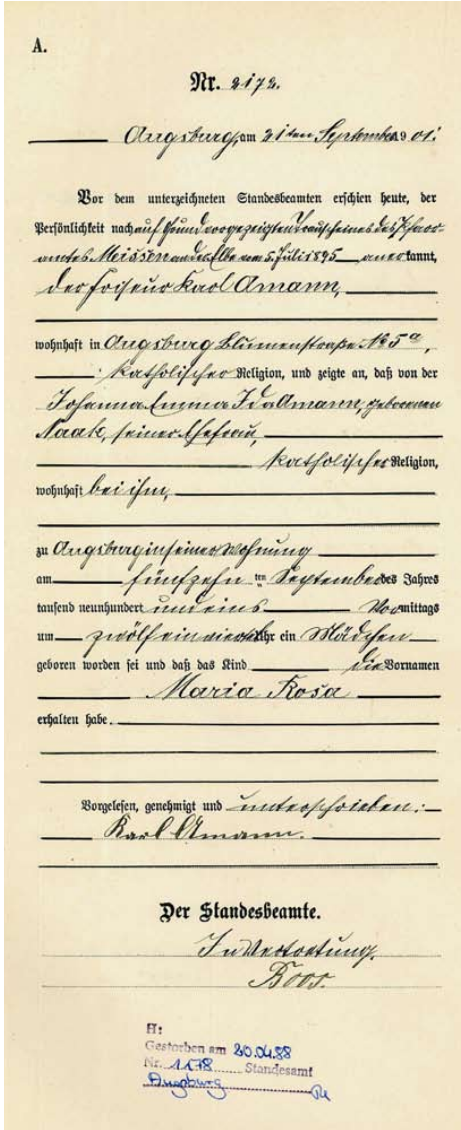 A.
Nr. 2172.
Augsburg, am 21ten September 1901.
Vor dem unterzeichneten Standesbeamten erschien heute, der
Persönlichkeit nach auf Grund vorgezeigten Trauscheines des Pfarr-
amtes Meissen an der Elbe vom 5. Juli 1895 anerkannt,
der Friseur Karl Amann,
wohnhaft in Augsburg Blumenstraße No 5a,
katholischer Religion, und zeigte an, daß von der
Johanna Emma Ida Amann, geborenen
Naak, seiner Ehefrau,
katholischer Religion,
wohnhaft bei ihm,
zu Augsburg in seiner Wohnung
am fünfzehnten September des Jahres
tausend neunhundert und eins Vormittags
um zwölf ein viertel Uhr ein Mädchen
geboren worden sei und daß das Kind die Vornamen
Maria Rosa
erhalten habe.
Vorgelesen, genehmigt und unterschrieben:
Karl Amann.
Der Standesbeamte.
In Vertretung.
Boos.
H:
Gestorben am 20.04.88
Nr. 1178 Standesamt
Augsburg